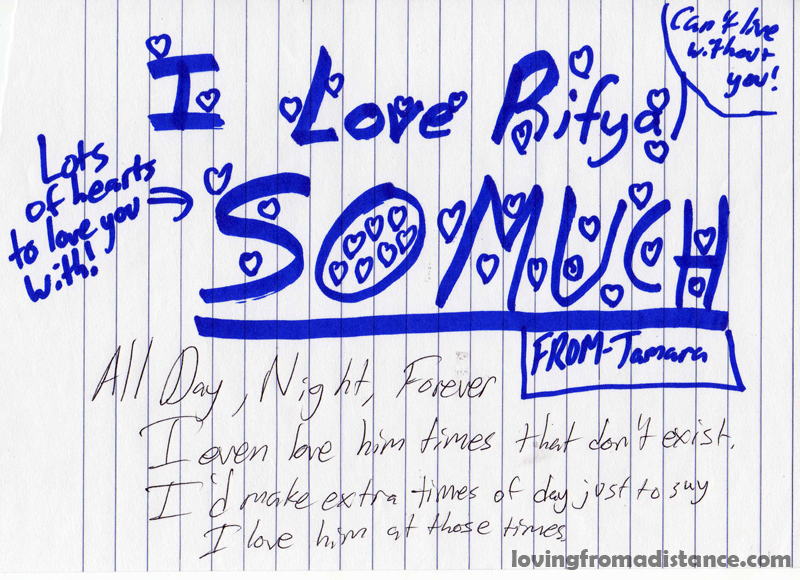 I Love Rifya
Can't live
without
you!
Lots
of hearts
to love you
with!
SO MUCH
FROM-Tamara
All Day, Night, Forever
I even love him times that don't exist.
I'd make extra times of day just to say
I love him at those times.
lovingfromadistance.com